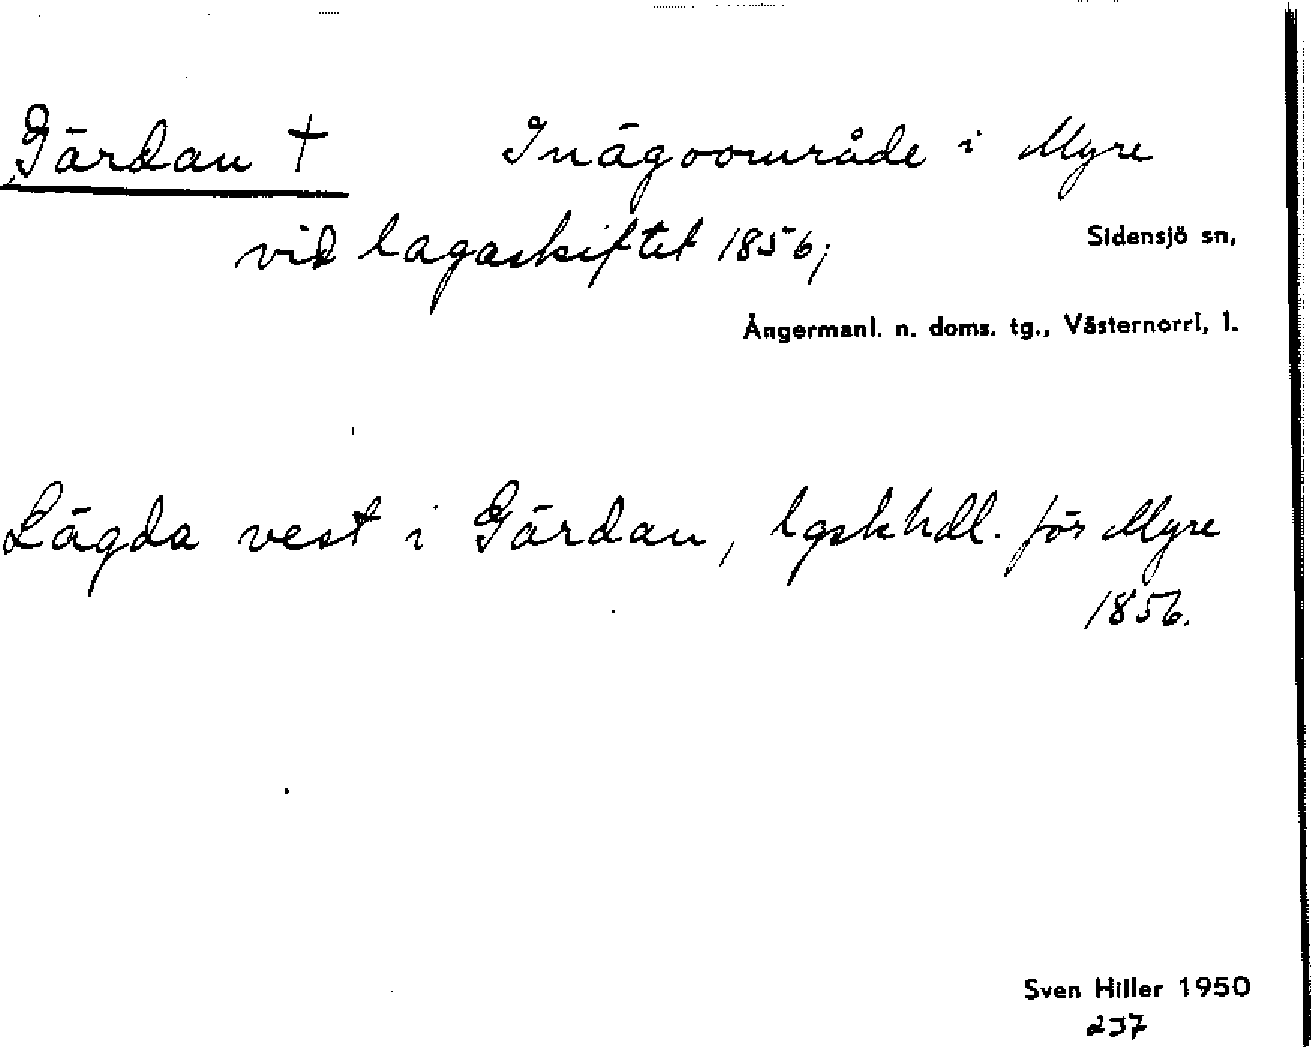 Gärdan † Inägoområde i Myre
vid lagaskiftet 1856;
Sidensjö sn,
Ångermanl. n. doms. tg., Västernorrl, l.
Lägda vest i Gärdan, lgskhdl. för Myre
1856.
Sven Hiller 1950
237